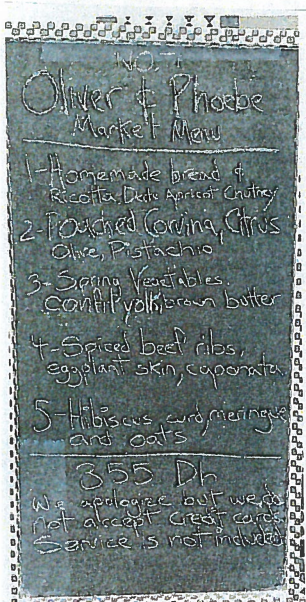 Oliver & Phoebe
Market Menu
1-Homemade bread &
Ricotta, Apricot Chutney
2-Poached Corvina, Citrus
Olive, Pistachio
3-Spring Vegetables,
Confit yolk, brown butter
4-Spiced beef ribs,
eggplant skin, caponata
5-Hibiscus curd, meringue
and oats
355 Dh
We apologize but we do
not accept credit cards
Service is not included